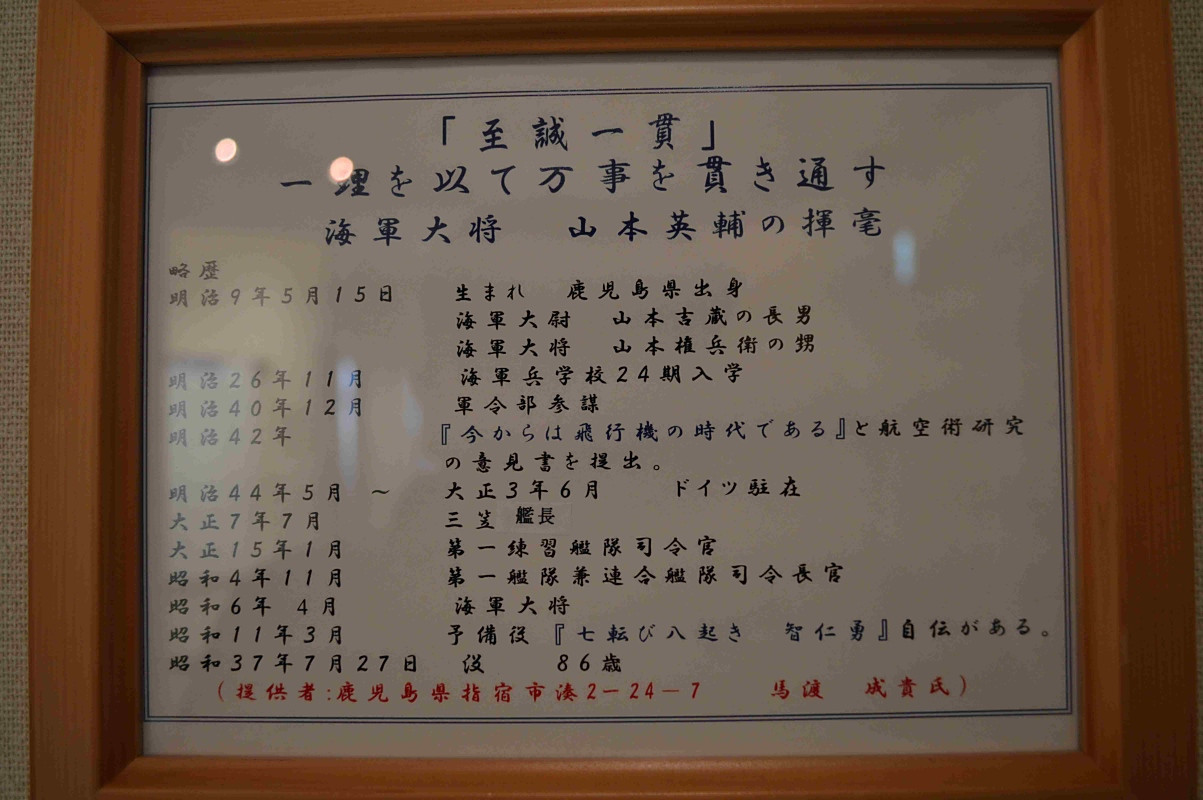 「至誠一貫」
一理を以て万事を貫き通す
海軍大将　山本英輔の揮毫
略歴
明治9年5月15日　生まれ　鹿児島県出身
海軍大尉　山本吉蔵の長男
海軍大将　山本権兵衛の甥
明治26年11月　海軍兵学校24期入学
明治40年12月　軍令部参謀
明治42年　『今からは飛行機の時代である』と航空術研究
の意見書を提出。
明治44年5月　～　大正3年6月　ドイツ駐在
大正7年7月　三笠　艦長
大正15年1月　第一練習艦隊司令官
昭和4年11月　第一艦隊兼連合艦隊司令長官
昭和6年　4月　海軍大将
昭和11年3月　予備役『七転び八起き　智仁勇』自伝がある。
昭和37年7月27日　没　86歳
（提供者:鹿児島県指宿市湊2－24－7　馬渡　成貴氏）